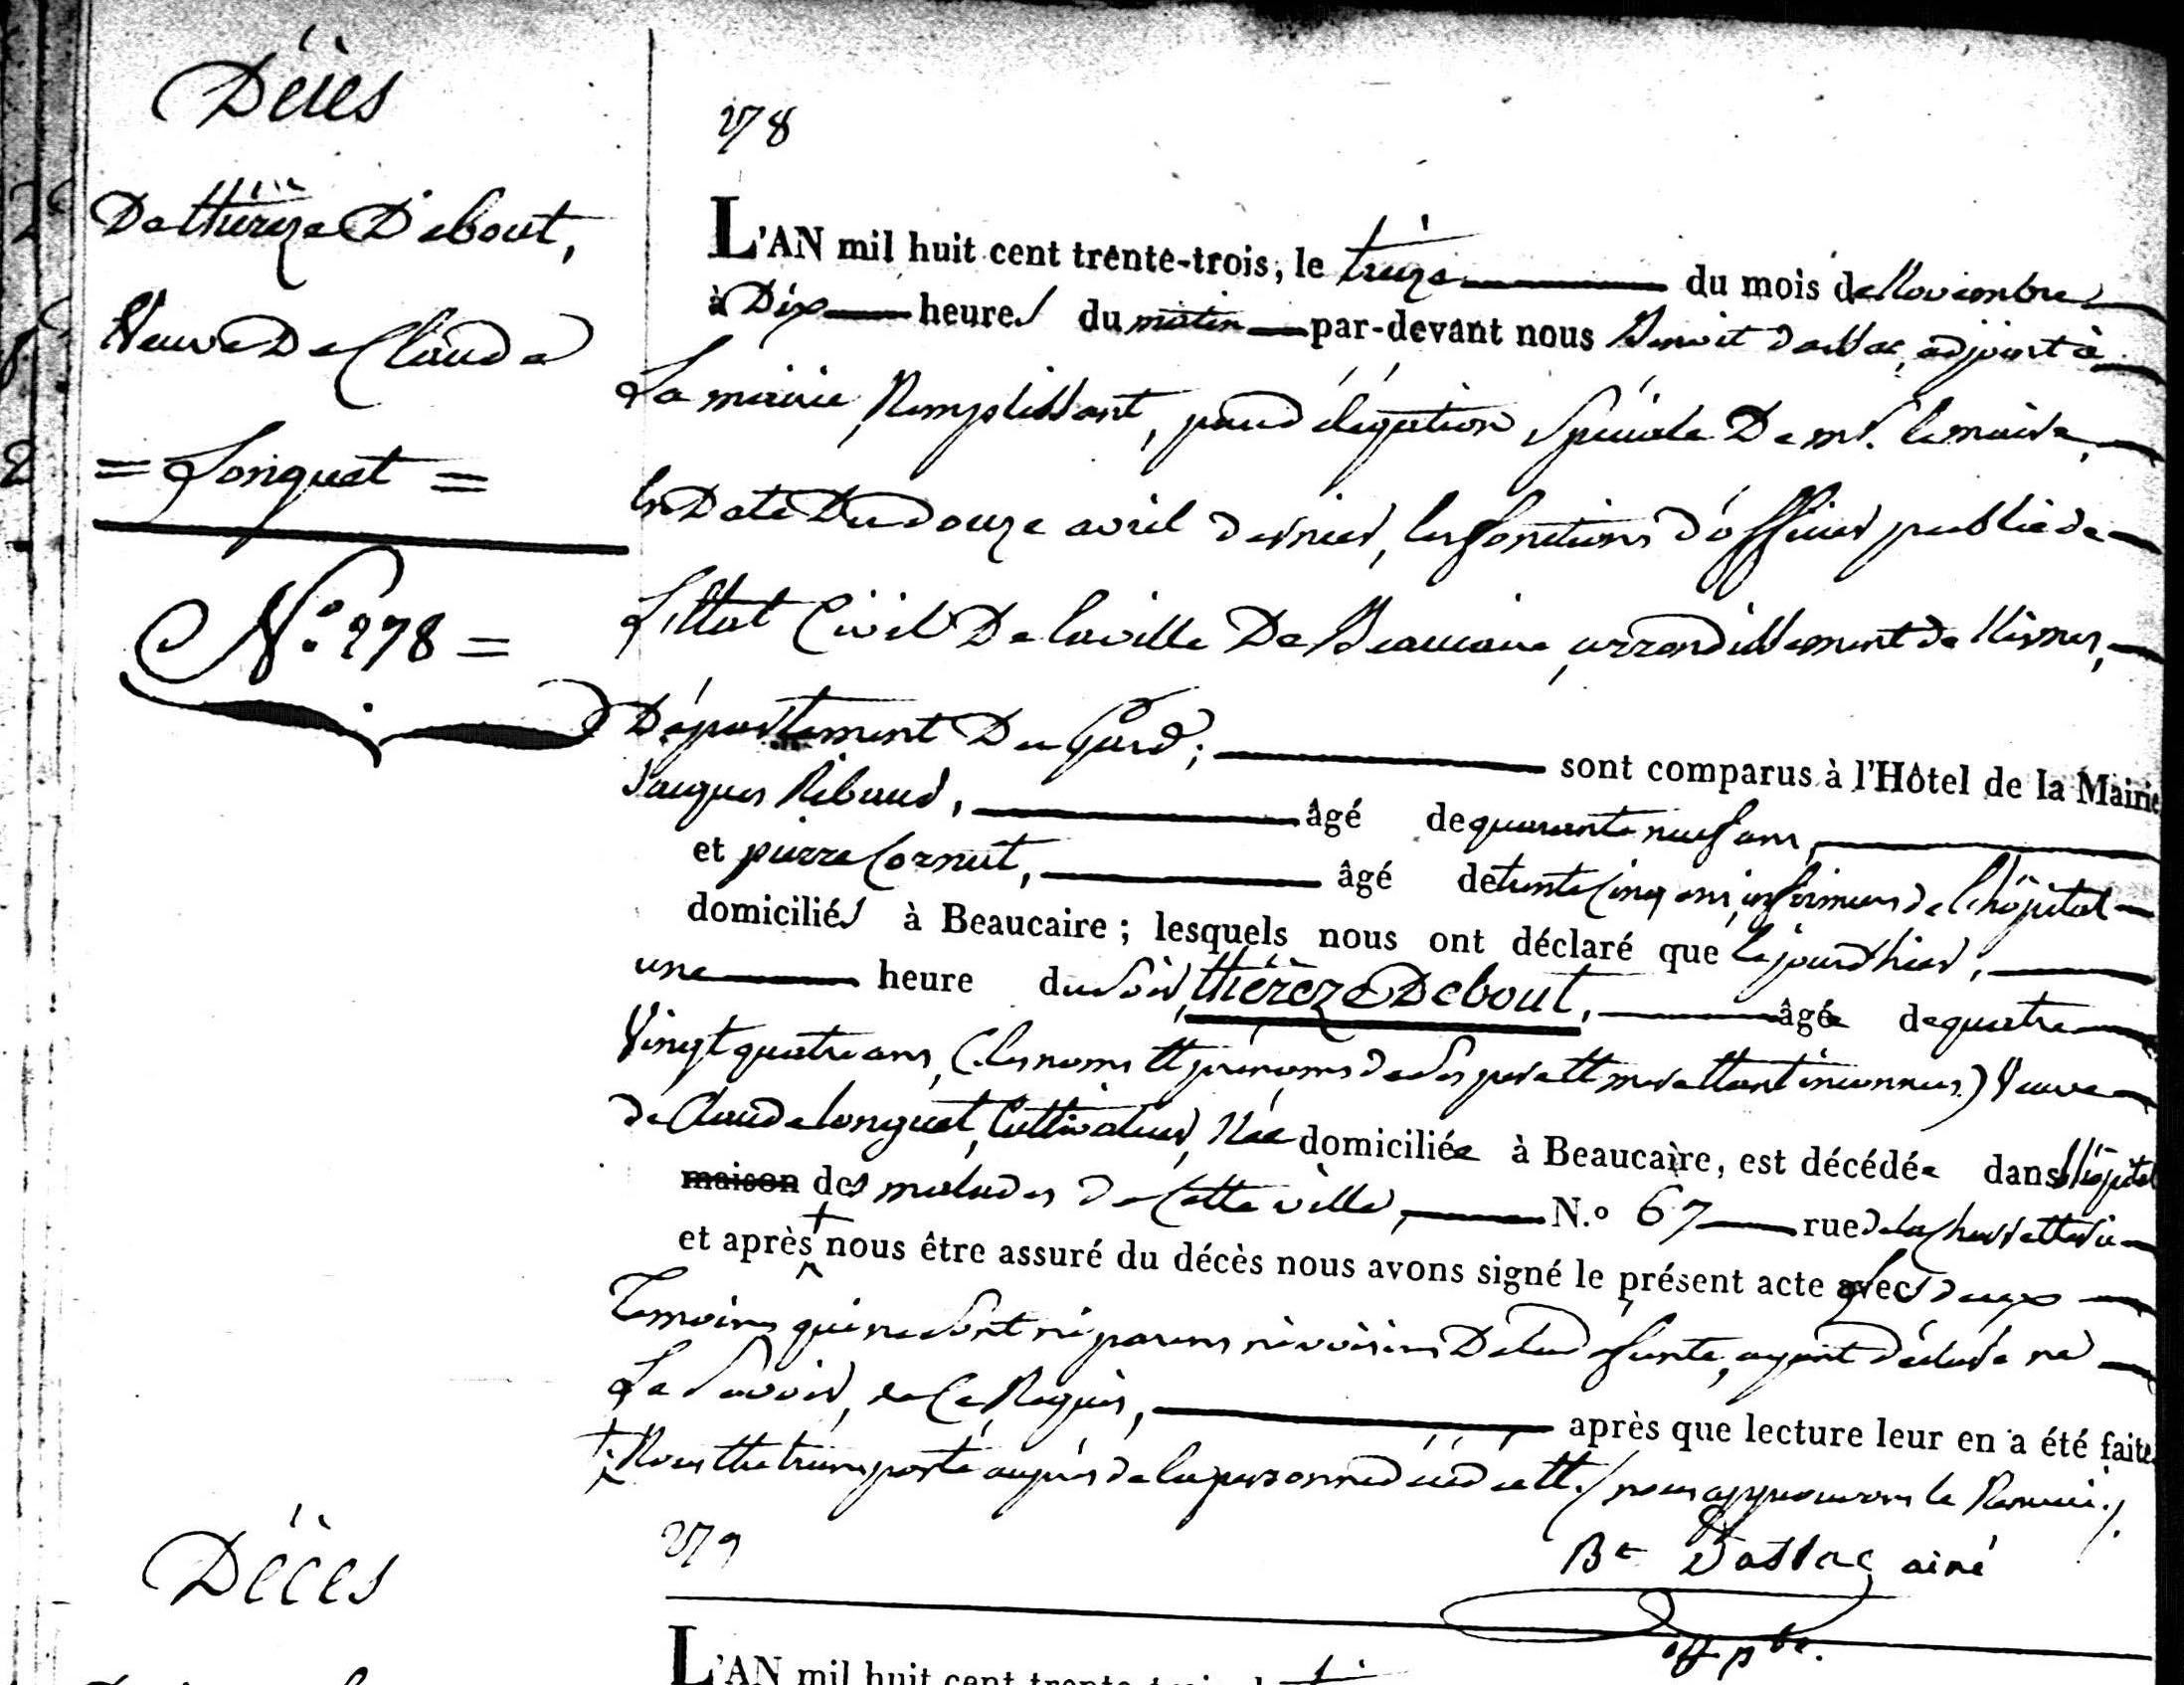 Décès
De thérèze Debout,
Veuve De Claude
= Longuet =
N.° 278 =
278
L'AN mil huit cent trente-trois, le treize du mois de Novembre
à Dix heures du matin par-devant nous Benoit Dassac, adjoint à
La mairie Remplissant, par délégation Spéciale De mr. le maire,
En Date Du douze avril dernier, les fonctions d'officier public de
L'Ettat Civil De la ville De Beaucaire, arrondissement de Nismes,
Département Du Gard; sont comparus à l'Hôtel de la Mairie
Jacques Ribaud, âgé de quarante neuf ans,
et pierre Cornut, âgé de trente Cinq ans, infirmiers de l'hôpital
domiciliés à Beaucaire ; lesquels nous ont déclaré que le jourd'hier,
une heure du Soir, thérèze Debout, âgée de quatre
Vingt quatre ans, (les noms et prénoms de Ses per et mer ettant inconnus) Veuve
de Claude longuet, Cultivateur, Née domiciliée à Beaucaire, est décédée dans l'hôpital
maison des malades de Cette ville, N.° 67 rue de la Charretterie
et après + nous être assuré du décès nous avons signé le présent acte avec deux
Temoins qui ne Sont ni parens ni voisins De la deffunte, ayant déclaré ne
Le Savoir, de Ce Requis, après que lecture leur en a été faite.
+ Nous ettre transporté auprès de la personne décédée ett./ nous approuvons le Renvoi./.
Bt Dassac ainé
off. pbc.
Décès
279
L'AN mil huit cent trente-trois, le